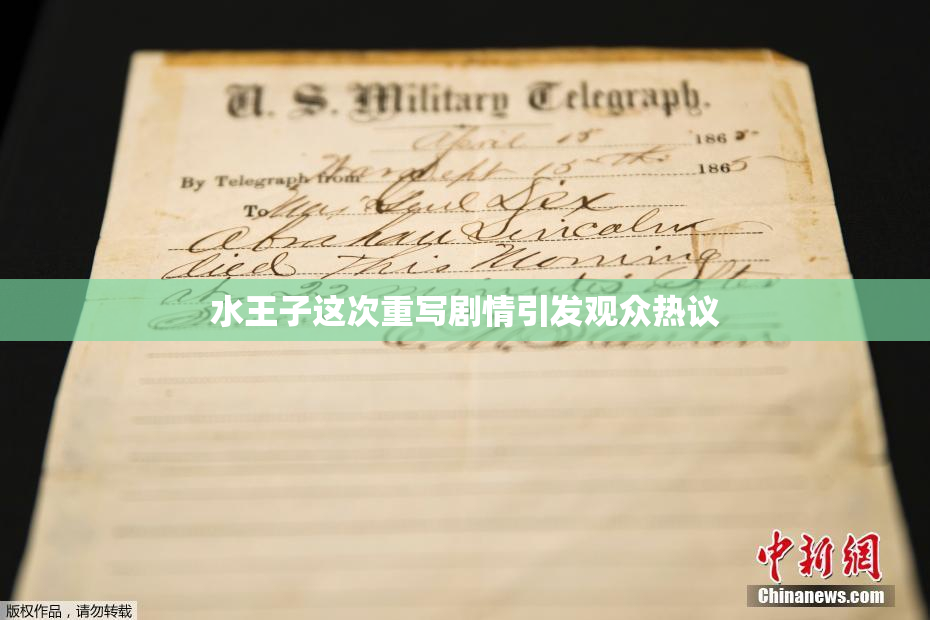 U. S. Military Telegraph.
April 15 1865
By Telegraph from War Dept 15th 1865
To Maj Genl Dix
Abraham Lincoln
died This Morning
at 22 minutes after
水王子这次重写剧情引发观众热议
中新网
Chinanews.com
版权作品，请勿转载